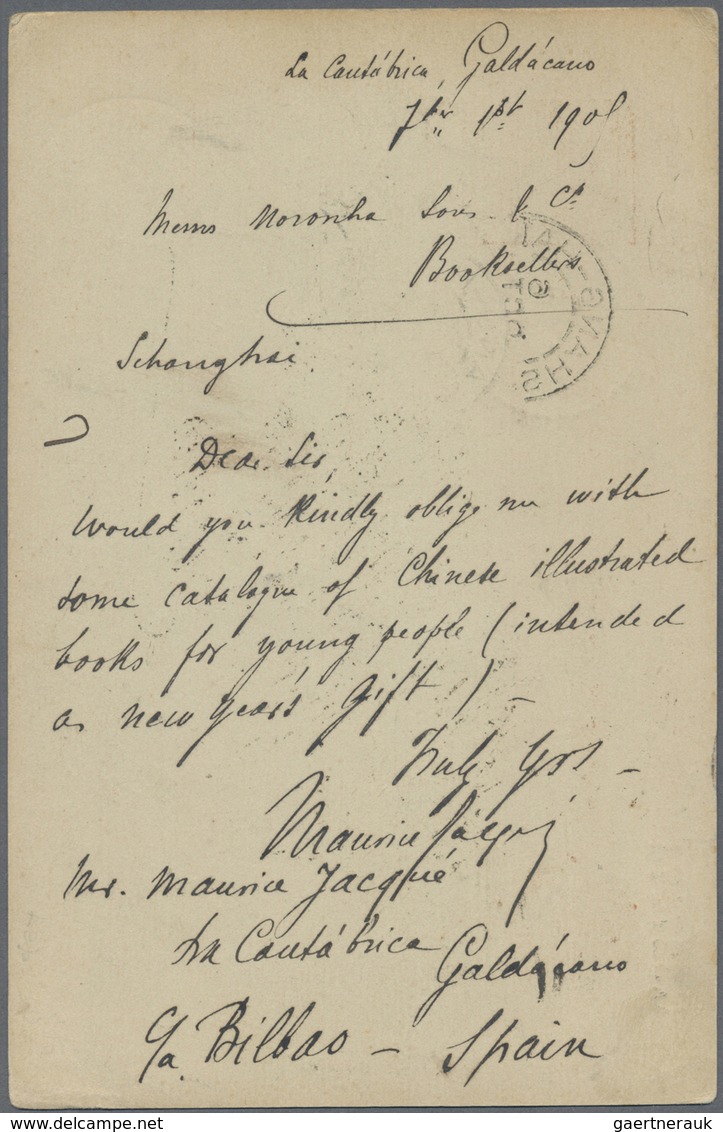 La Cantábrica, Galdácano
7br 1st 1905
Messrs Noronha Sons & Co
Booksellers
Schanghai.
Dear Sir,
Would you kindly oblige me with
some catalogue of Chinese illustrated
books for young people (intended
as new year's Gift) –
Truly Yrs –
Maurice Jacqué
Mr. Maurice Jacqué
La Cantábrica Galdácano
c/a Bilbao – Spain
SHANGHAI
gaertnerauk